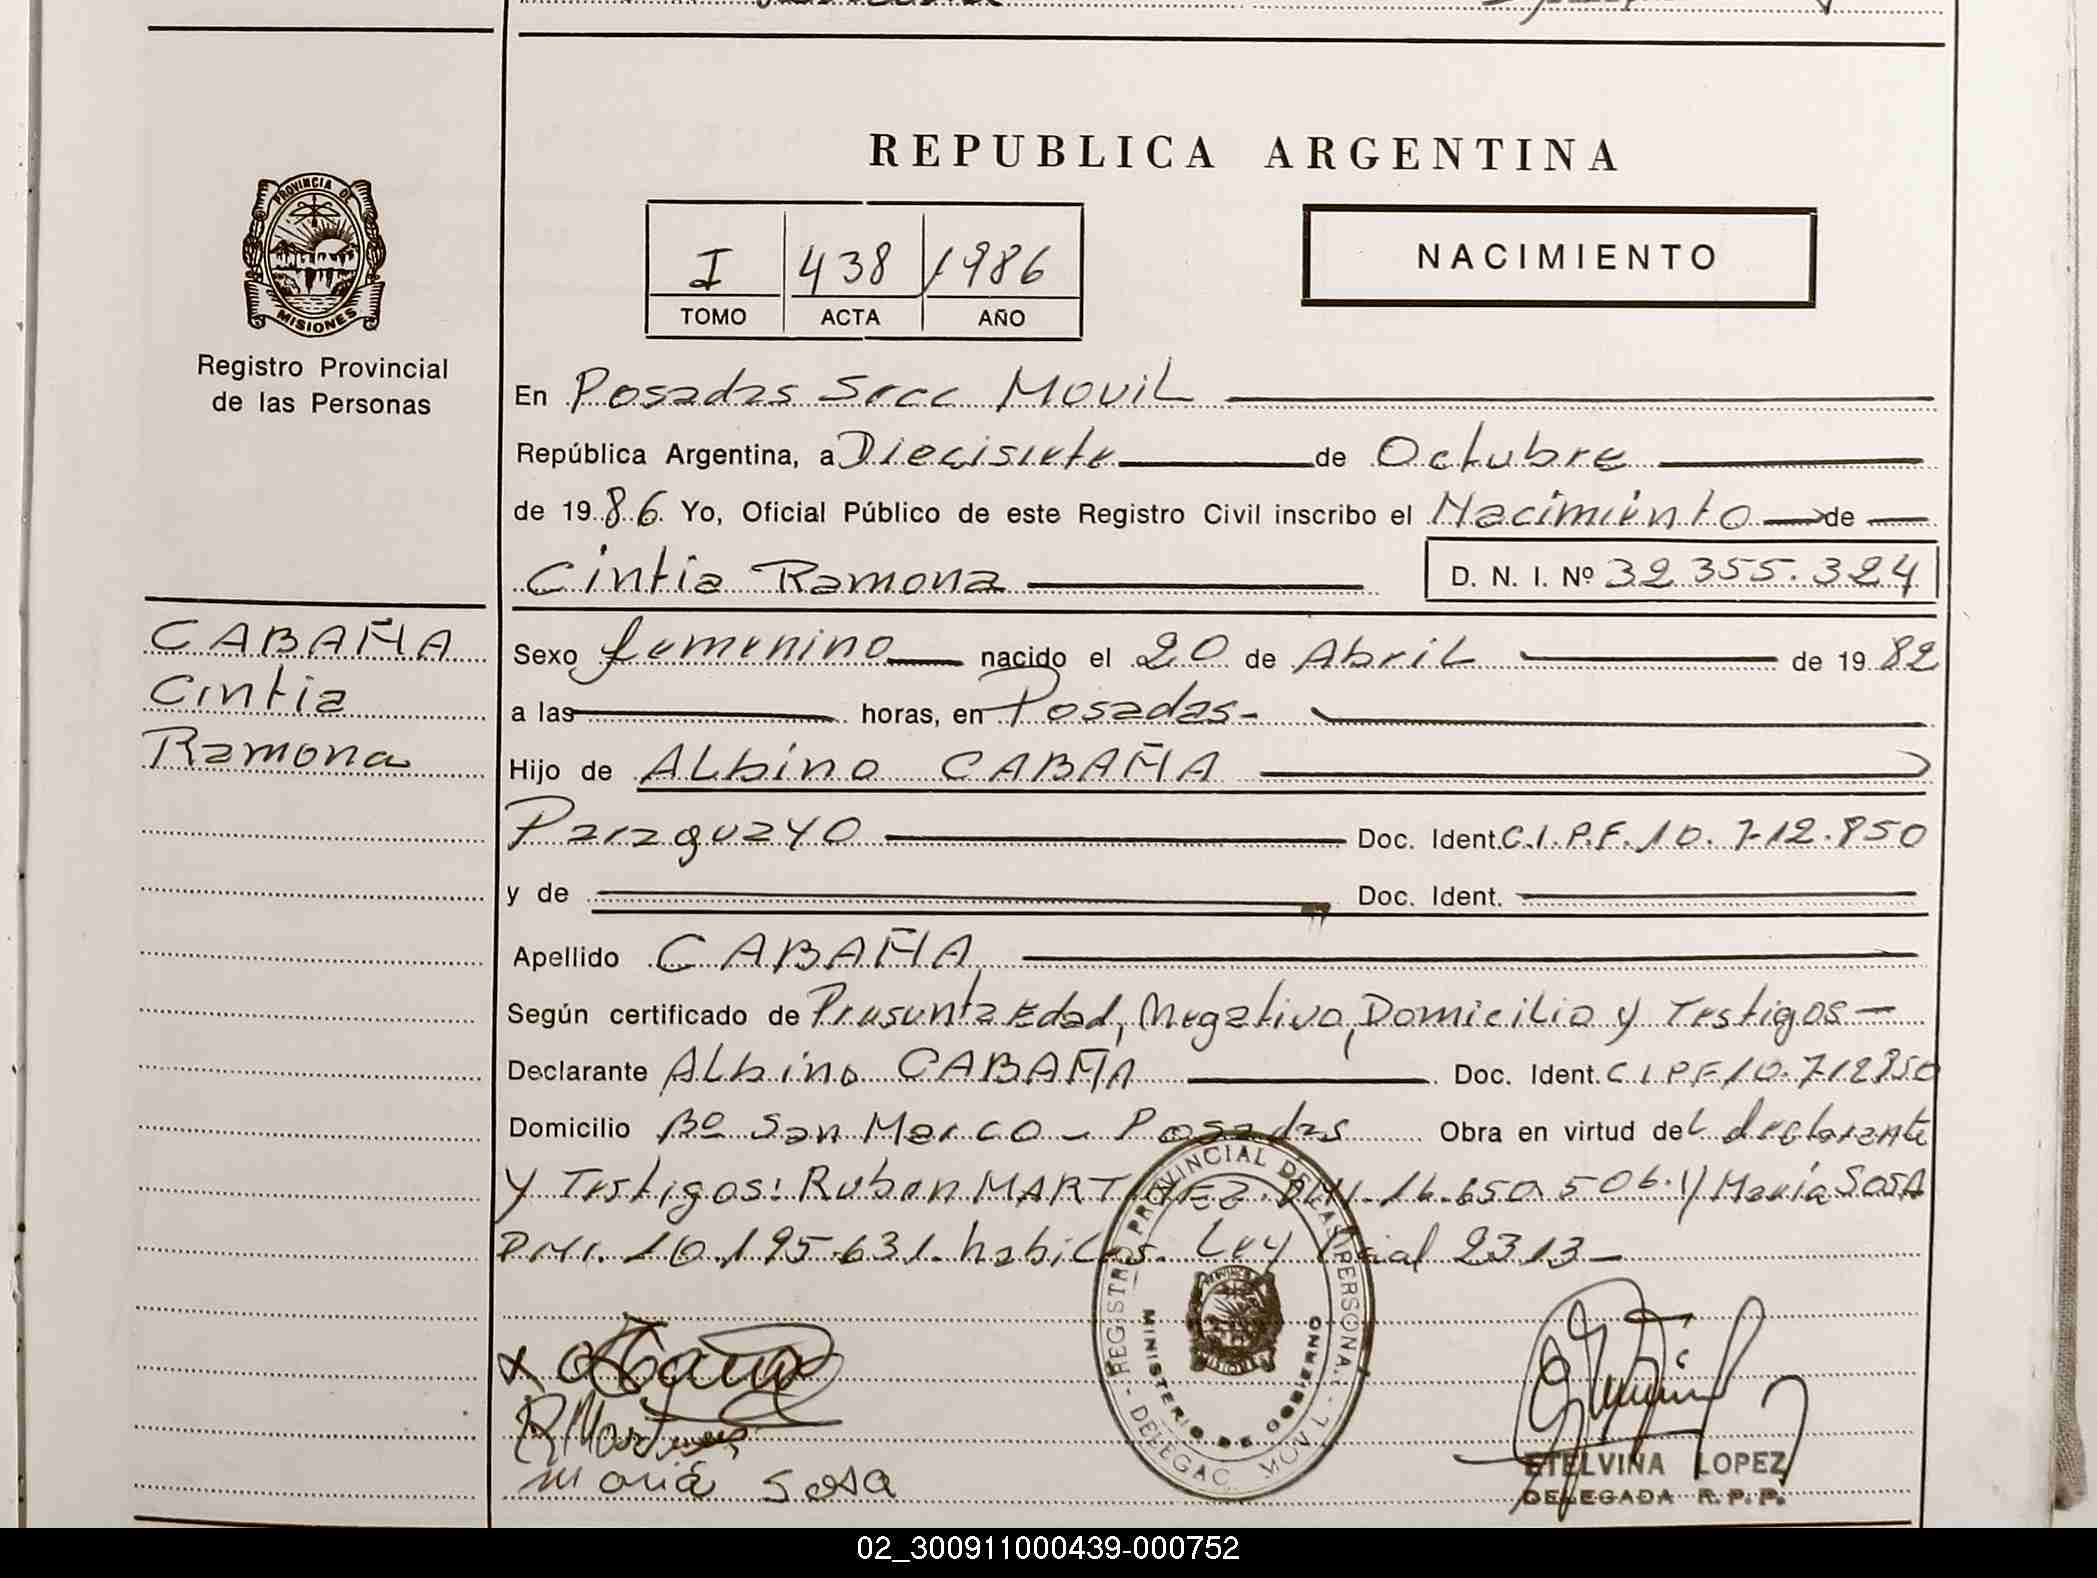 PROVINCIA DE
MISIONES
Registro Provincial
de las Personas
REPUBLICA ARGENTINA
I 438 1986
TOMO ACTA AÑO
NACIMIENTO
En Posadas Secc Movil
República Argentina, a Diecisiete de Octubre
de 1986 Yo, Oficial Público de este Registro Civil inscribo el Nacimiento de
Cintia Ramona D. N. I. Nº 32 355.324
CABAÑA
Cintia
Ramona
Sexo femenino nacido el 20 de Abril de 1982
a las horas, en Posadas-
Hijo de ALbino CABAÑA
Paraguayo Doc. Ident. C.I.P.F. 10.712.850
y de Doc. Ident.
Apellido CABAÑA
Según certificado de Presunta Edad, Negativo, Domicilio y Testigos-
Declarante ALbino CABAÑA Doc. Ident. C I P F 10.712850
Domicilio Bº San Marco - Posadas Obra en virtud deL declarante
y Testigos: Ruben MARTINEZ. DNI. 16.650.506. y María SOSA
DNI. 10.195.631. habiles. Ley 2313-
REGISTRO PROVINCIAL DE LAS PERSONAS
MINISTERIO DE GOBIERNO
- DELEGAC. MOVIL -
R Martinez
María Sosa
ETELVINA LOPEZ
DELEGADA R. P. P.
02_300911000439-000752